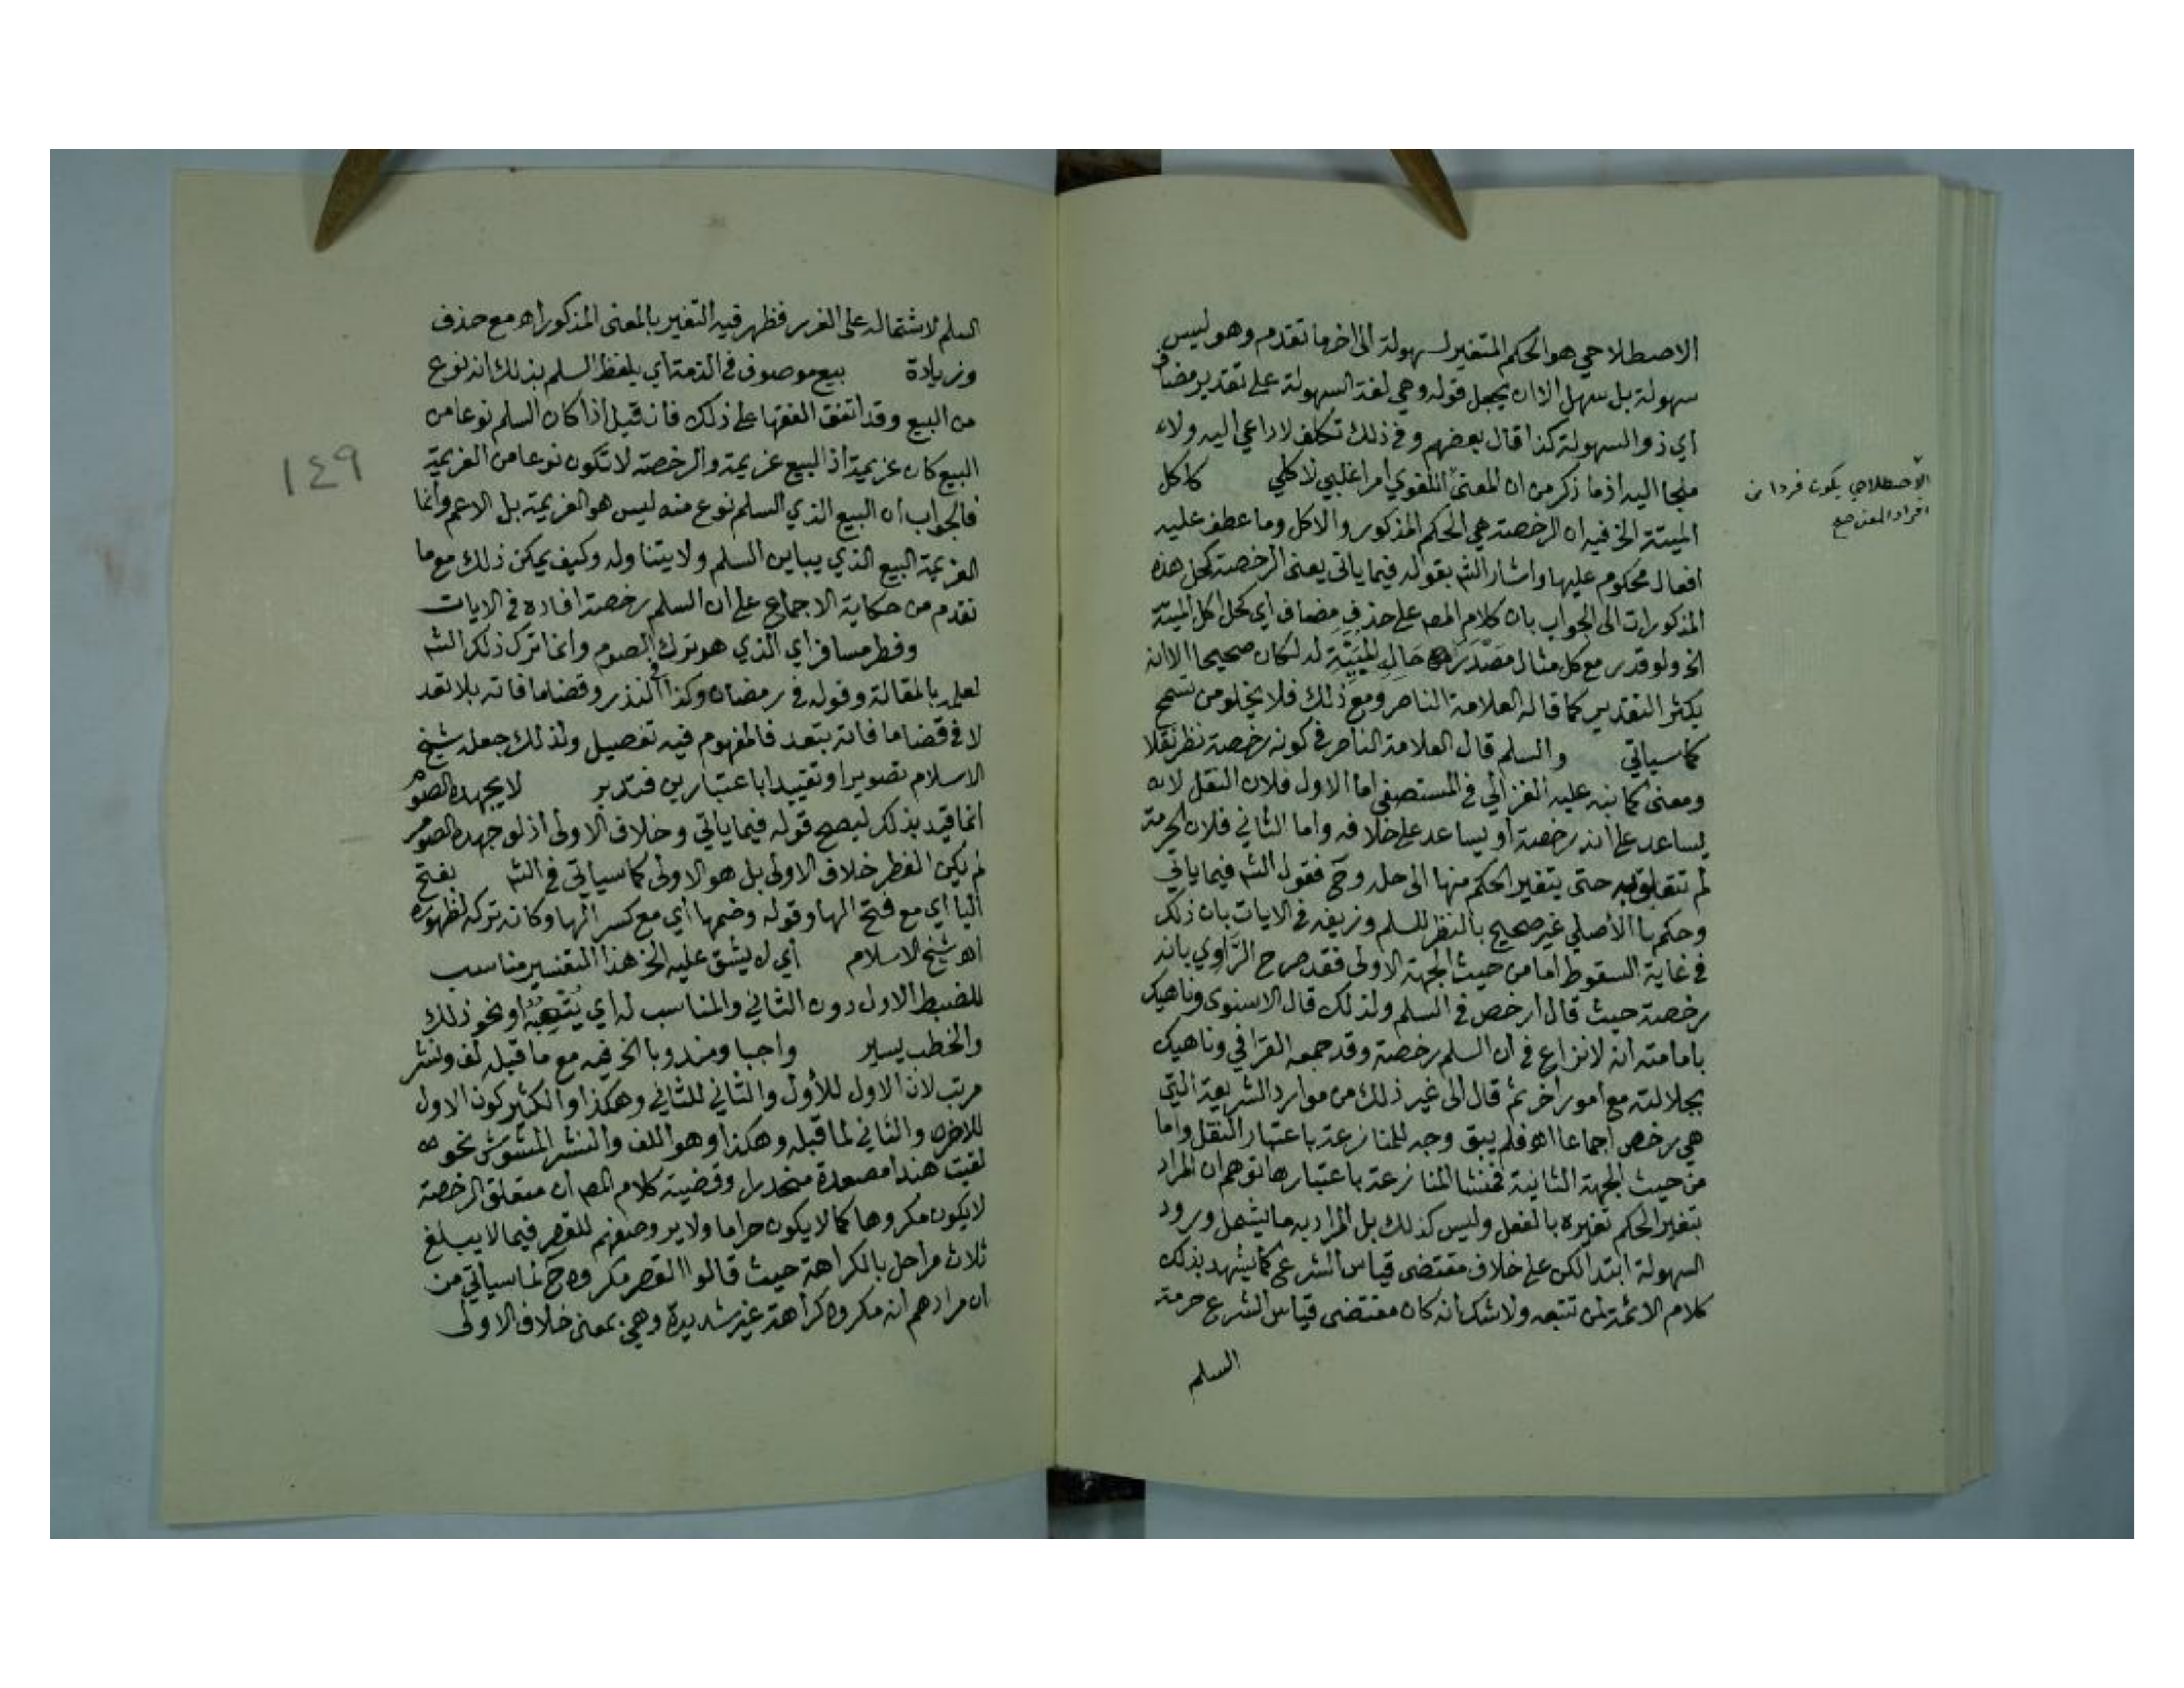 الاصطلاحي هو الحكم المتغير لسهولة الى اخر ما تقدم وهو ليس
سهولة بل سهل الا ان يجعل قوله وهي لغة السهولة على تقدير مضاف
أي ذو السهولة كذا قال بعضهم وفي ذلك تكلف لا داعي اليه ولا
ملجا اليه اذ ما ذكر من ان المعنى اللغوي امر اغلبي لا كلي كاكل
الميتة الخ فيه ان الرخصة هي الحكم المذكور والاكل وما عطف عليه
افعال محكوم عليها واشار الشـ بقوله فيما ياتي يعني الرخصة كحل هذه
المذكورات الى الجواب بان كلام المصـ على حذف مضاف أي كحل اكل الميتة
الخ ولو قدر مع كل مثال مصدره حال المبينة له لكان صحيحا الا انه
يكثر التقدير كما قاله العلامة الناصر ومع ذلك فلا يخلو من تسمح
كما سياتي والسلم قال العلامة الناصر في كونه رخصة نظر نقلا
ومعنى كما نبه عليه الغزالي في المستصفى اما الاول فلان النقل لا
يساعد على انه رخصة او يساعد على خلافه واما الثاني فلان الحرمة
لم تتعلق به حتى يتغير الحكم منها الى حله وح فقول الشـ فيما ياتي
وحكمها الأصلي غير صحيح بالنظر للسلم وزيفه في الايات بان ذلك
في غاية السقوط اما من حيث الجهة الاولى فقد صرح الراوي بانه
رخصة حيث قال ارخص في السلم ولذلك قال الاسنوي وناهيك
بامامته انه لا نزاع في ان السلم رخصة وقد جمعه القرافي وناهيك
بجلالته مع امور اخر ثم قال الى غير ذلك من موارد الشريعة التي
هي رخص اجماعا اهـ فلم يبق وجه للمنازعة باعتبار النقل واما
من حيث الجهة الثانية فمنشا المنازعة باعتبارها توهم ان المراد
بتغير الحكم تغيره بالفعل وليس كذلك بل المراد به ما يشمل ورود
السهولة ابتدا لكن على خلاف مقتضى قياس الشرع كما يشهد بذلك
كلام الائمة لمن تتبعه ولا شك انه كان مقتضى قياس الشرع حرمة
السلم
الاصطلاحي يكون فردا من
افراد المعنى صح
السلم لاشتماله على الغرر فظهر فيه التغير بالمعنى المذكور اهـ مع حذف
وزيادة بيع موصوف في الذمة أي بلفظ السلم بذلك انه نوع
من البيع وقد اتفق الفقها على ذلك فان قيل اذا كان السلم نوعا من
البيع كان عزيمة اذ البيع عزيمة والرخصة لا تكون نوعا من العزيمة
فالجواب ان البيع الذي السلم نوع منه ليس هو العزيمة بل الاعم وانما
العزيمة البيع الذي يباين السلم ولا يتناوله وكيف يمكن ذلك مع ما
تقدم من حكاية الاجماع على ان السلم رخصة افاده في الايات
وفطر مسافر أي الذي هو ترك الصوم وانما ترك ذلك الشـ
لعلمه بالمقالة وقوله في رمضان وكذا في النذر وقضا ما فاته بلا تعد
لا في قضا ما فاته بتعد فالمفهوم فيه تفصيل ولذلك جعله شيخ
الاسلام تصويرا وتقييدا باعتبارين فتدبر لا يجهده الصوم
انما قيد بذلك ليصح قوله فيما ياتي وخلاف الاولى اذ لو جهده الصوم
لم يكن الفطر خلاف الاولى بل هو الاولى كما سياتي في الشـ بفتح
اليا أي مع فتح الها وقوله وضمها أي مع كسر الها وكانه تركه لظهوره
اهـ شيخ الاسلام أي لا يشق عليه الخ هذا التفسير مناسب
للضبط الاول دون الثاني والمناسب له أي يتعبه او نحو ذلك
والخطب يسير واجبا ومندوبا الخ فيه مع ما قبله لف ونشر
مرتب لان الاول للأول والثاني للثاني وهكذا والكثير كون الاول
للاخر والثاني لما قبله وهكذا وهو اللف والنشر المشوش نحو
لقيت هندا مصعدة منحدرا وقضية كلام المصـ ان متعلق الرخصة
لا يكون مكروها كما لا يكون حراما ولا يرد وصفهم للقصر فيما لا يبلغ
ثلاث مراحل بالكراهة حيث قالوا القصر مكروه ح لما سياتي من
ان مرادهم انه مكروه كراهة غير شديدة وهي بمعنى خلاف الاولى
١٤٩